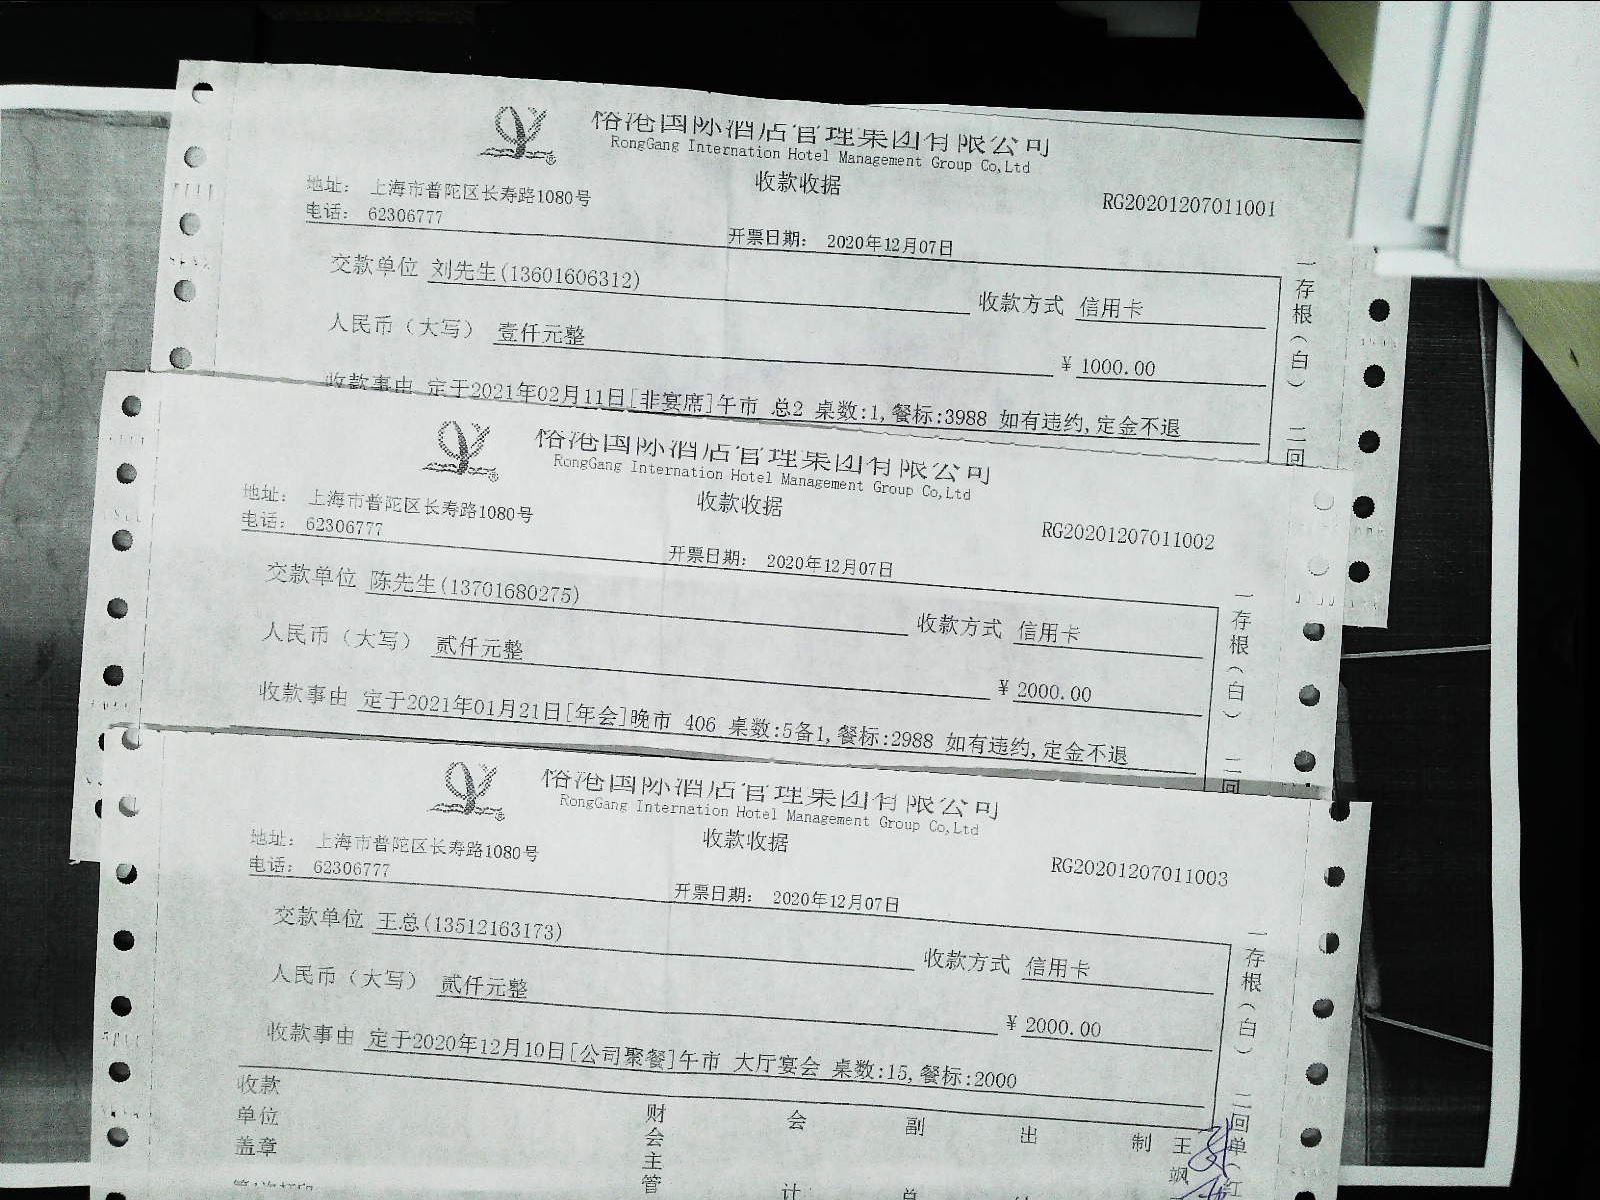 榕港国际酒店管理集团有限公司
RongGang Internation Hotel Management Group Co,Ltd
收款收据
地址： 上海市普陀区长寿路1080号
RG20201207011001
电话： 62306777
开票日期： 2020年12月07日
交款单位 刘先生(13601606312)
收款方式 信用卡
人民币（大写） 壹仟元整
¥ 1000.00
收款事由 定于2021年02月11日[非宴席]午市 总2 桌数:1,餐标:3988 如有违约,定金不退
一存根(白) 二回
榕港国际酒店管理集团有限公司
RongGang Internation Hotel Management Group Co,Ltd
收款收据
地址： 上海市普陀区长寿路1080号
RG20201207011002
电话： 62306777
开票日期： 2020年12月07日
交款单位 陈先生(13701680275)
收款方式 信用卡
人民币（大写） 贰仟元整
¥ 2000.00
收款事由 定于2021年01月21日[年会]晚市 406 桌数:5备1,餐标:2988 如有违约,定金不退
一存根(白) 二回
榕港国际酒店管理集团有限公司
RongGang Internation Hotel Management Group Co,Ltd
收款收据
地址： 上海市普陀区长寿路1080号
RG20201207011003
电话： 62306777
开票日期： 2020年12月07日
交款单位 王总(13512163173)
收款方式 信用卡
人民币（大写） 贰仟元整
¥ 2000.00
收款事由 定于2020年12月10日[公司聚餐]午市 大厅宴会 桌数:15,餐标:2000
一存根(白) 二回单(红
收款单位盖章
财会主管
会计
副
出
制
王飒